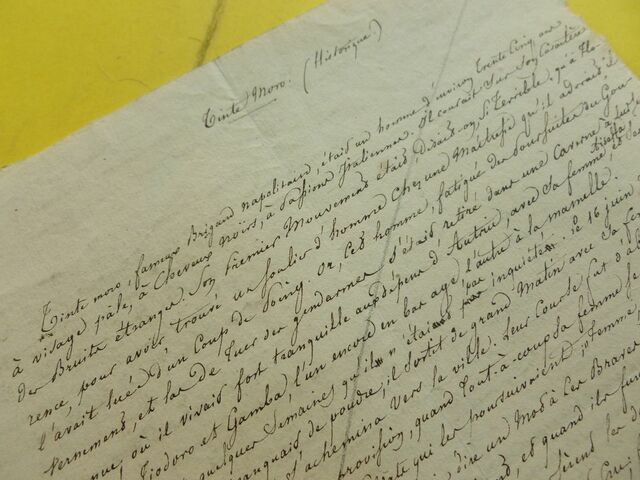 Tinte Moro. (Historique)
Tinte moro, fameux Brigand napolitain, était un homme d'environ trente cinq ans
à visage pâle, à cheveux noirs, à passions Italiennes. Il courait sur son Caractère
des Bruits étranges. Son premier Mouvement était, disait-on, si terrible, qu'à Flo-
rence, pour avoir trouvé un soulier d'homme chez une Maîtresse qu'il adorait, il
l'avait tuée d'un Coup de Poing. Or, cet homme, fatigué des poursuites du Gou-
vernement, et las de tuer des gendarmes s'était retiré dans une caverne
nue, où il vivait fort tranquille aux dépens d'Autrui, avec sa femme, et
Tiodoro et Gamba, l'un encore en bas age, l'autre à la mamelle.
quelques Semaines qu'il n'était pas inquiété. Le 16 juin
manquait de poudre, il sortit de grand Matin avec sa
s'achemina vers la ville. Leur Course fut d'a
provision, quand tout-à-coup sa femme
qui les poursuivaient, "femme,
dire un Mot à ces Braves
et quand ils fu